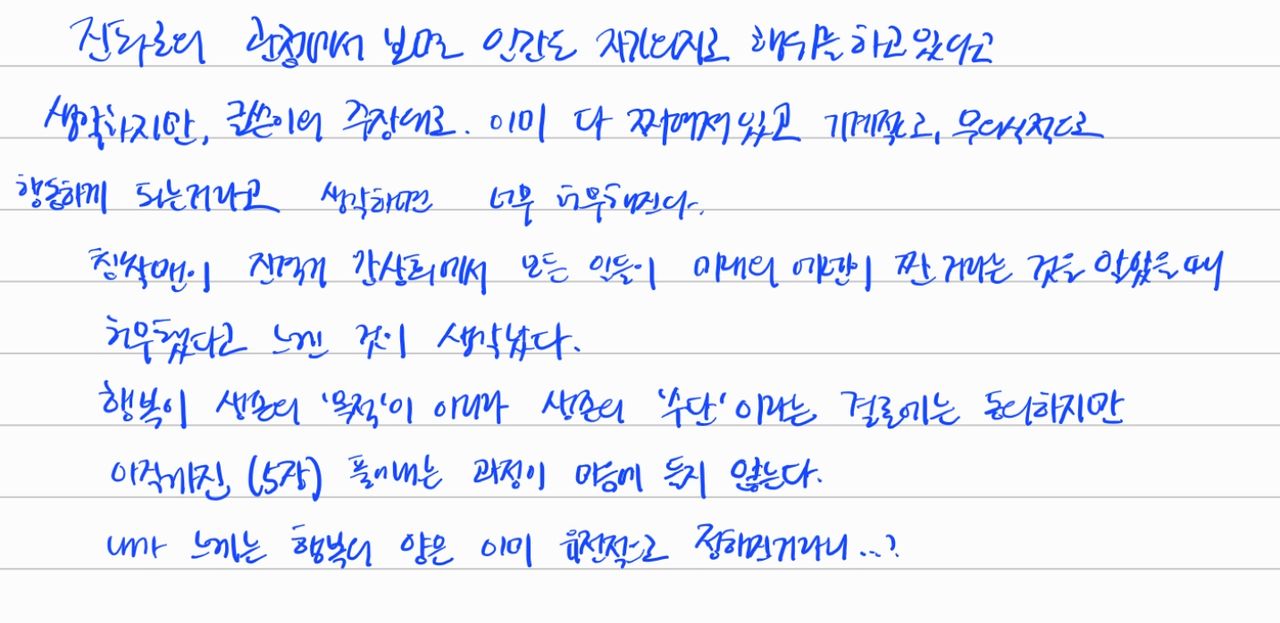 진화론의 관점에서 보면 인간도 자기의지로 행위를 하고 있다고
생각하지만, 글쓴이의 주장대로. 이미 다 짜여져있고 기계적으로, 무의식적으로
행동하게 되는거라고 생각하면 너무 허무해진다.
침착맨이 진격거 감상회에서 모든 일들이 미래의 에렌이 짠거라는 것을 알았을때
허무했다고 느낀 것이 생각났다.
행복이 생존의 '목적'이 아니라 생존의 '수단'이라는 결론에는 동의하지만
아직까진 (5장) 풀어내는 과정이 마음에 들지 않는다.
내가 느끼는 행복의 양은 이미 유전적으로 정해진거라니...?